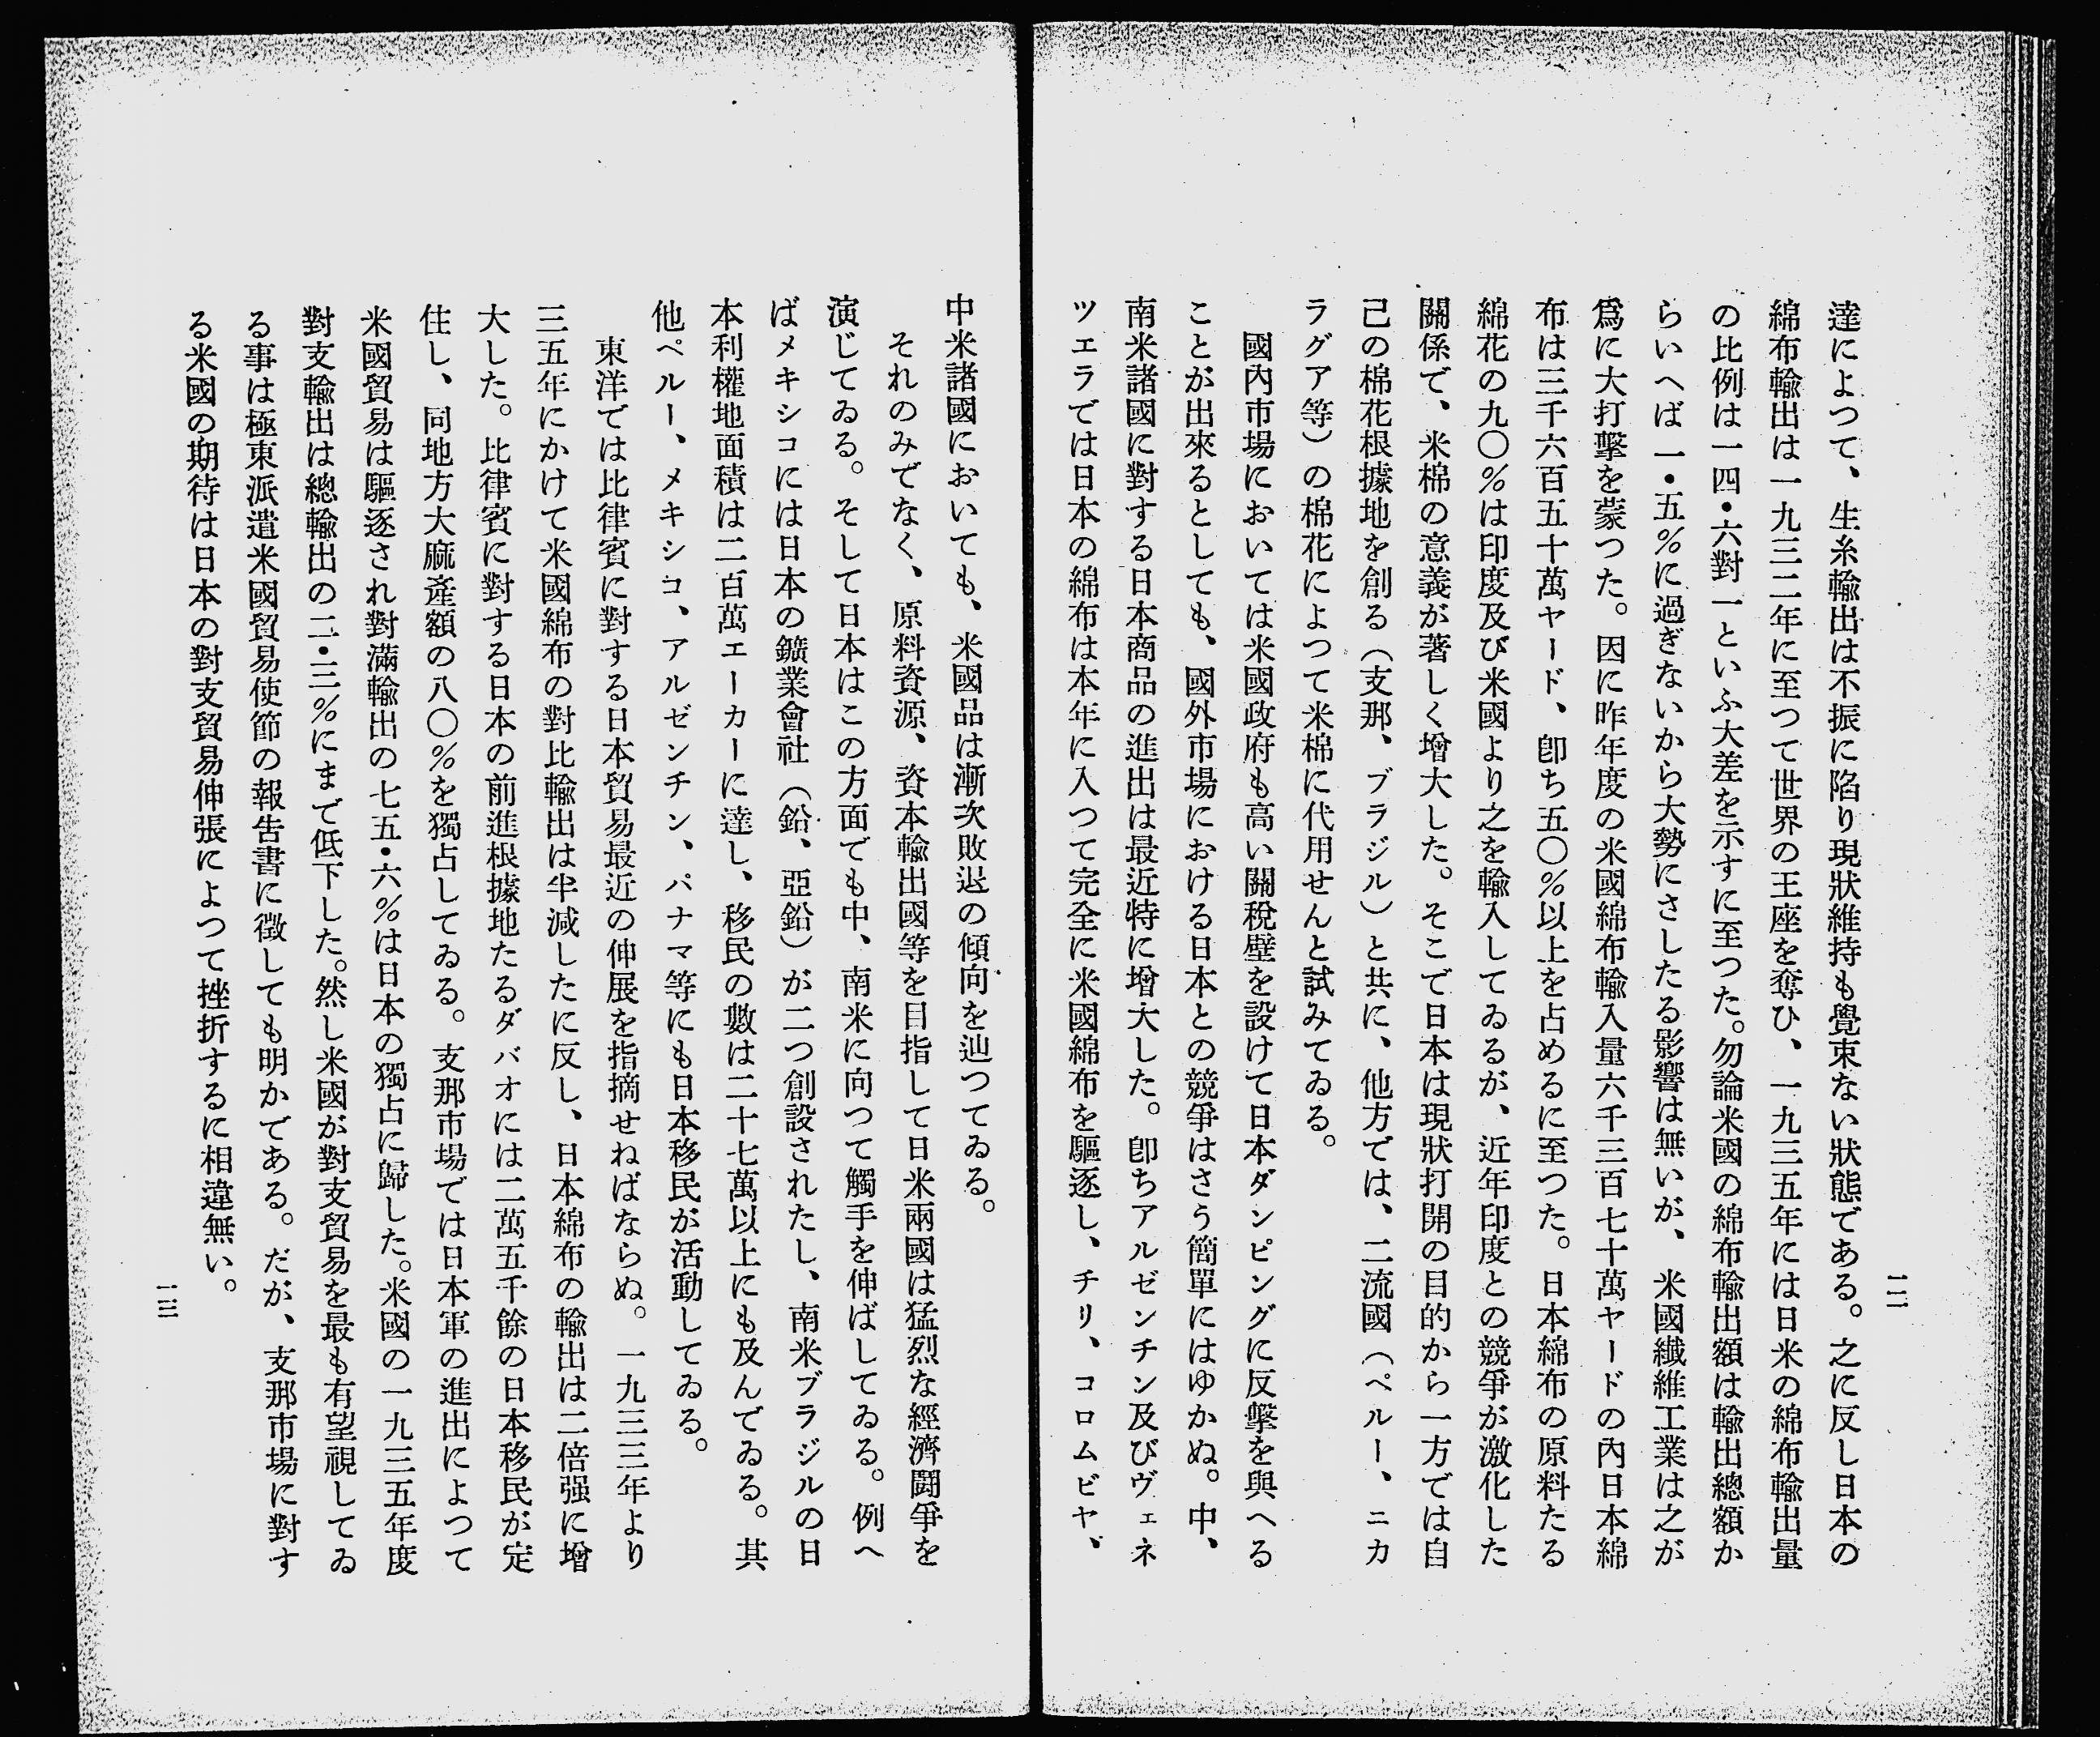 一二
達によつて、生糸輸出は不振に陷り現狀維持も覺束ない狀態である。之に反し日本の
綿布輸出は一九三二年に至つて世界の王座を奪ひ、一九三五年には日米の綿布輸出量
の比例は一四・六對一といふ大差を示すに至つた。勿論米國の綿布輸出額は輸出總額か
らいへば一・五%に過ぎないから大勢にさしたる影響は無いが、米國纎維工業は之が
爲に大打擊を蒙つた。因に昨年度の米國綿布輸入量六千三百七十萬ヤードの內日本綿
布は三千六百五十萬ヤード、卽ち五〇%以上を占めるに至つた。日本綿布の原料たる
綿花の九〇%は印度及び米國より之を輸入してゐるが、近年印度との競爭が激化した
關係で、米棉の意義が著しく增大した。そこで日本は現狀打開の目的から一方では自
己の棉花根據地を創る（支那、ブラジル）と共に、他方では、二流國（ペルー、ニカ
ラグア等）の棉花によつて米棉に代用せんと試みてゐる。
國內市場においては米國政府も高い關稅壁を設けて日本ダンピングに反擊を與へる
ことが出來るとしても、國外市場における日本との競爭はさう簡單にはゆかぬ。中、
南米諸國に對する日本商品の進出は最近特に增大した。卽ちアルゼンチン及びヴェネ
ツエラでは日本の綿布は本年に入つて完全に米國綿布を驅逐し、チリ、コロムビヤ、
中米諸國においても、米國品は漸次敗退の傾向を辿つてゐる。
それのみでなく、原料資源、資本輸出國等を目指して日米兩國は猛烈な經濟鬪爭を
演じてゐる。そして日本はこの方面でも中、南米に向つて觸手を伸ばしてゐる。例へ
ばメキシコには日本の鑛業會社（鉛、亞鉛）が二つ創設されたし、南米ブラジルの日
本利權地面積は二百萬エーカーに達し、移民の數は二十七萬以上にも及んでゐる。其
他ペルー、メキシコ、アルゼンチン、パナマ等にも日本移民が活動してゐる。
東洋では比律賓に對する日本貿易最近の伸展を指摘せねばならぬ。一九三三年より
三五年にかけて米國綿布の對比輸出は半減したに反し、日本綿布の輸出は二倍强に增
大した。比律賓に對する日本の前進根據地たるダバオには二萬五千餘の日本移民が定
住し、同地方大麻產額の八〇%を獨占してゐる。支那市場では日本軍の進出によつて
米國貿易は驅逐され對滿輸出の七五・六%は日本の獨占に歸した。米國の一九三五年度
對支輸出は總輸出の二・三%にまで低下した。然し米國が對支貿易を最も有望視してゐ
る事は極東派遣米國貿易使節の報吿書に徵しても明かである。だが、支那市場に對す
る米國の期待は日本の對支貿易伸張によつて挫折するに相違無い。
一三